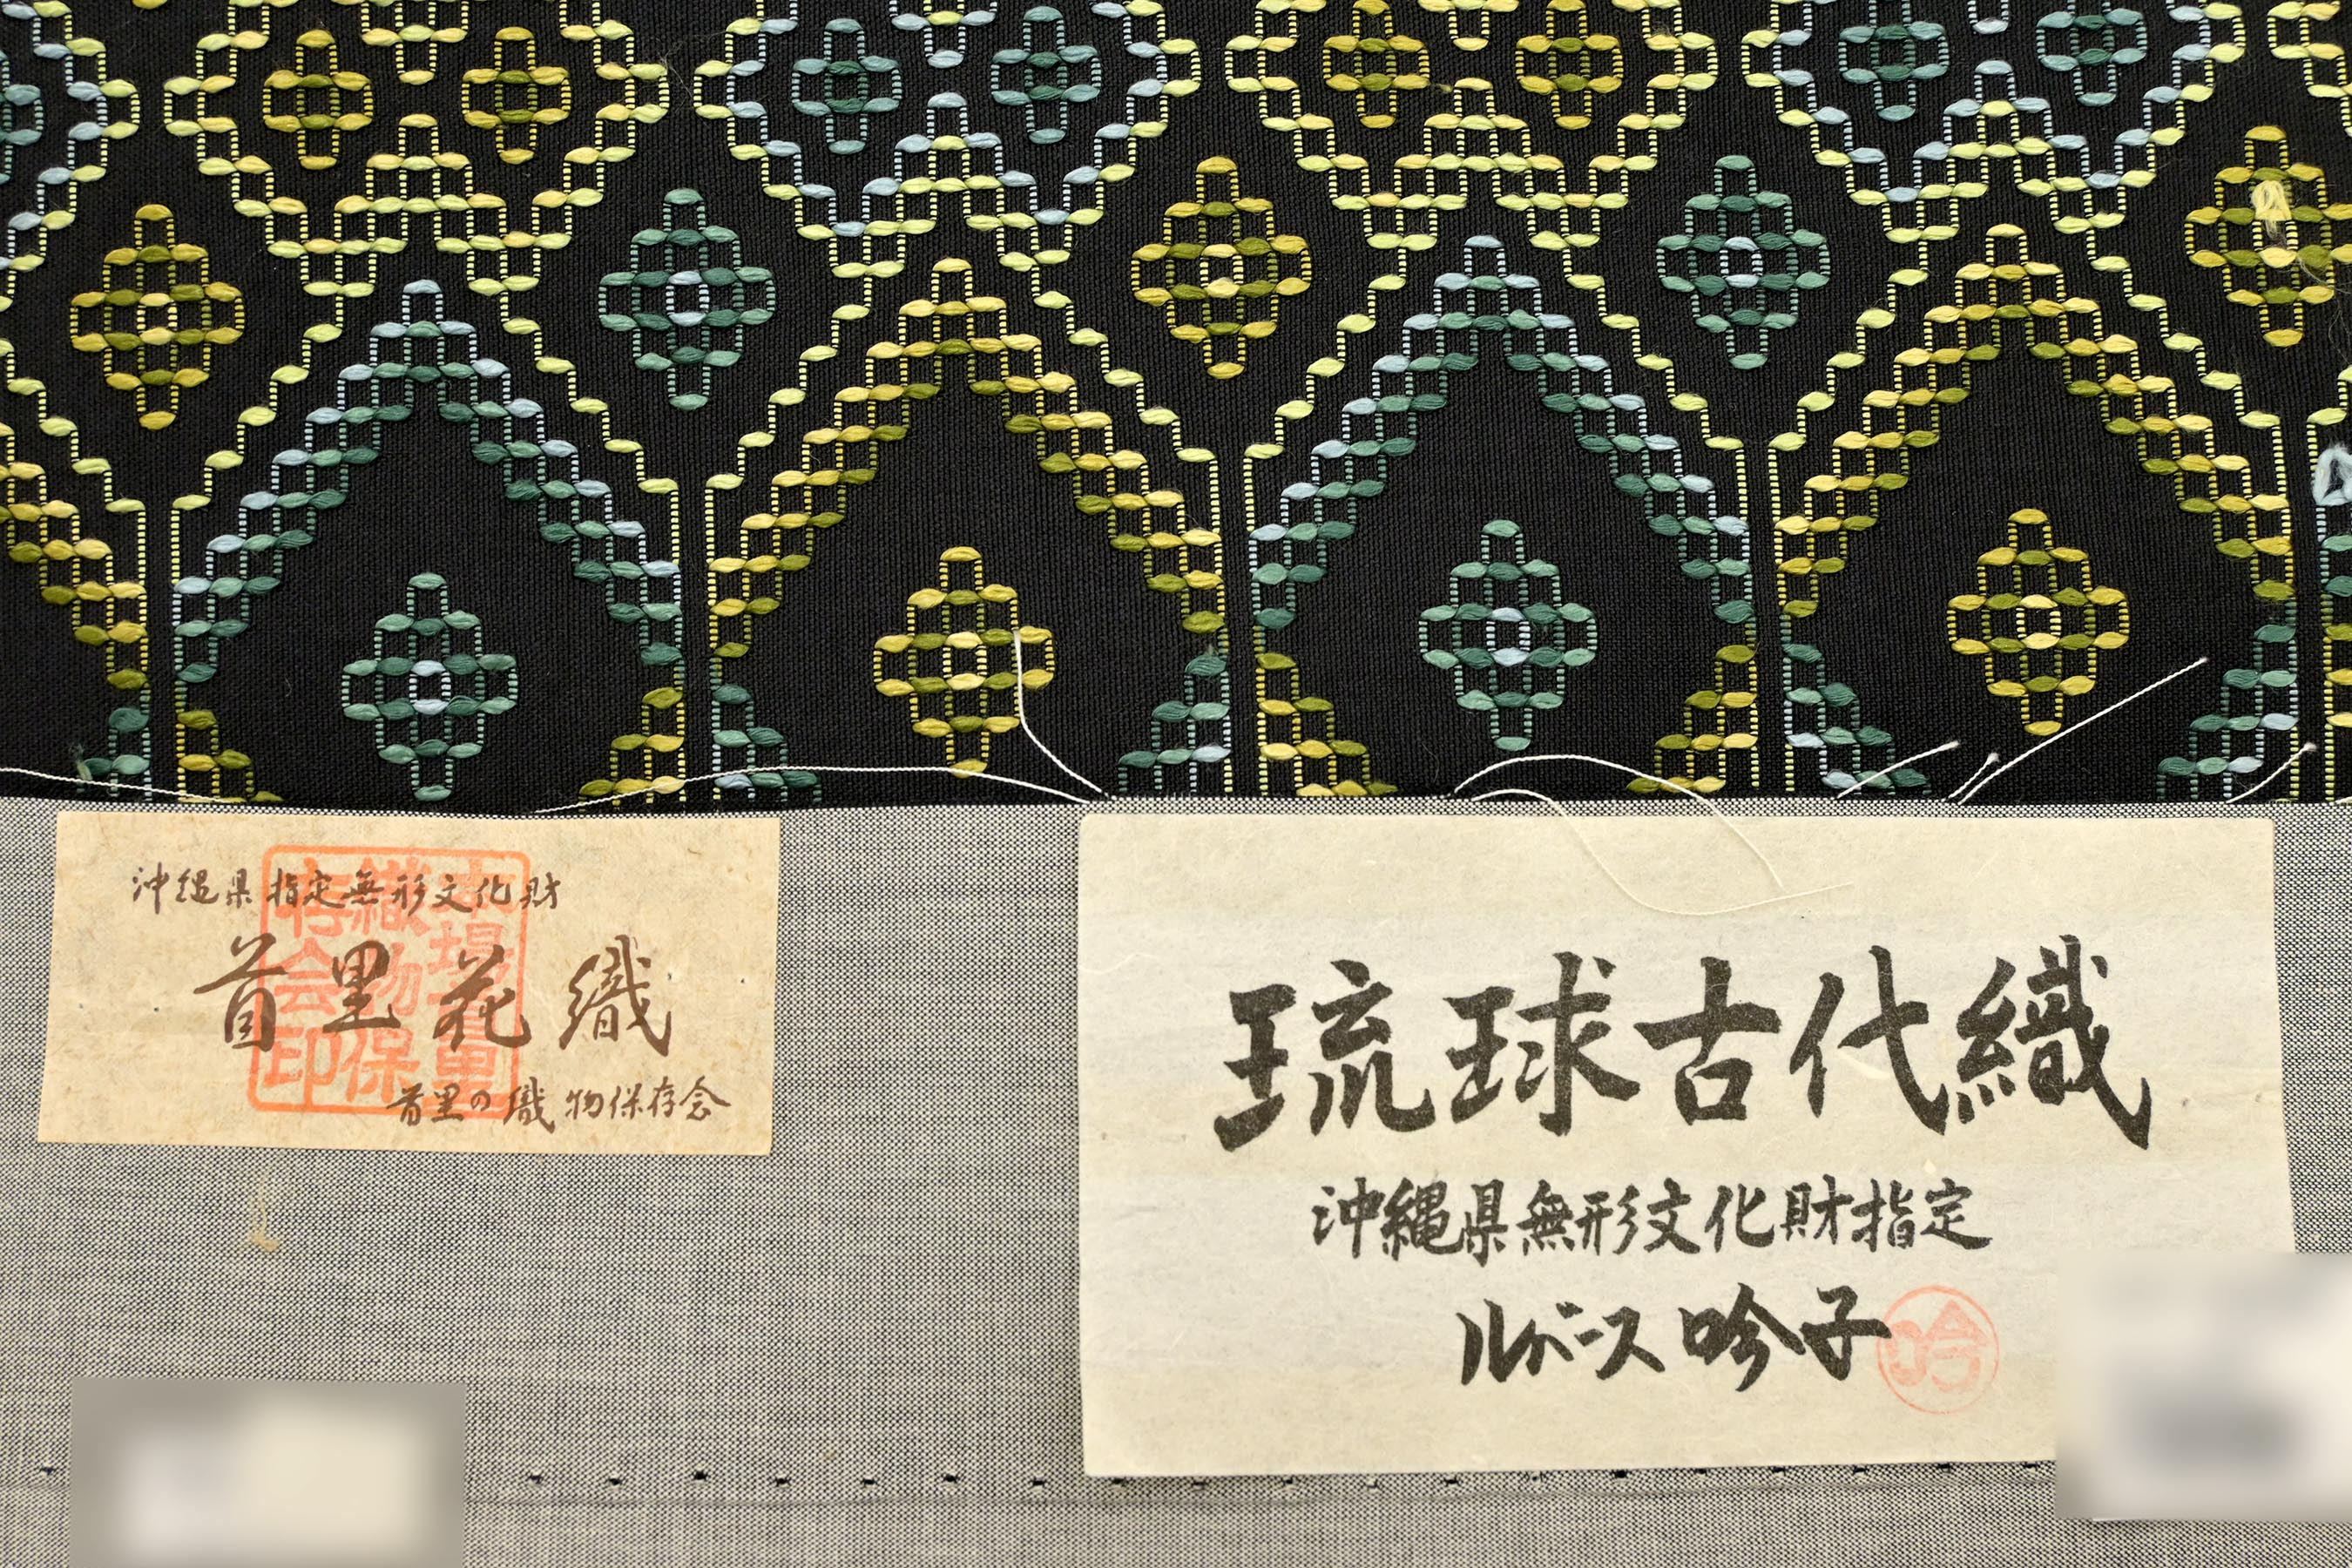 沖縄県指定無形文化財
首里花織
首里の織物保存会
織物保
存会印
琉球古代織
沖縄県無形文化財指定
ルバース吟子
吟